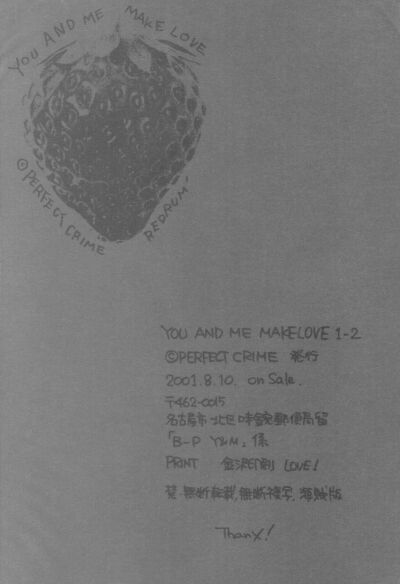 YOU AND ME MAKE LOVE
©PERFECT CRIME
REDRUM
YOU AND ME MAKELOVE 1-2
©PERFECT CRIME 発行
2001.8.10. on Sale.
〒462-0015
名古屋市 北区 味鋺郵便局留
「B-P Y&M」様
PRINT 金沢印刷 LOVE!
禁・無断転載,無断複写,海賊版
Thanx!